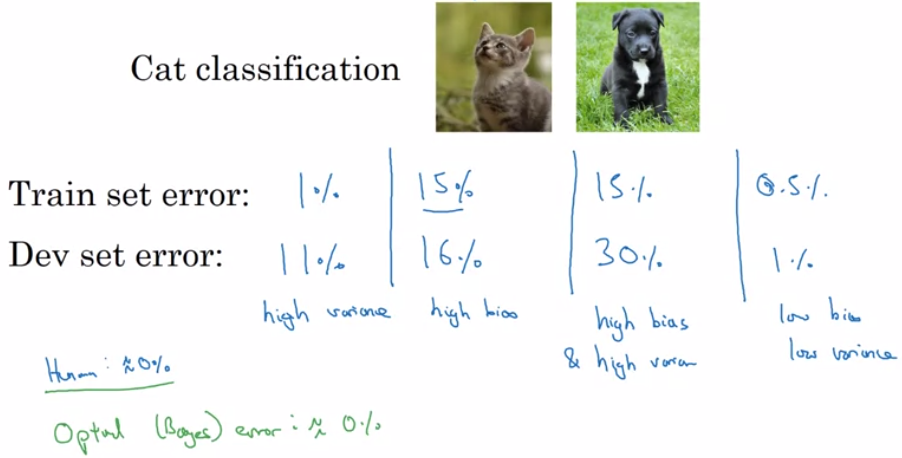 Cat classification
Train set error: 1% 15% 15% 0.5%
Dev set error: 11% 16% 30% 1%
high variance high bias high bias low bias
& high varian low variance
Human: ≈0%
Optimal (Bayes) error: ≈ 0%